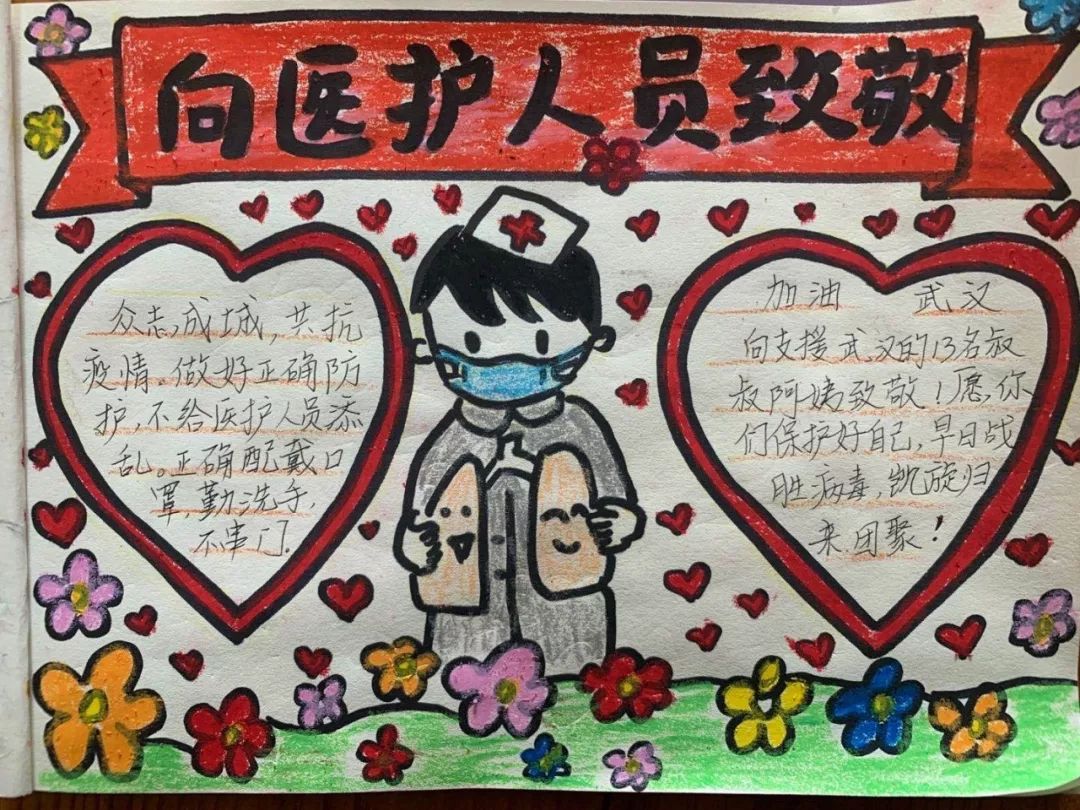 向医护人员致敬
众志成城，共抗
疫情。做好正确防
护，不给医护人员添
乱。正确配戴口
罩，勤洗手，
不串门.
加油 武汉
向支援武汉的13名叔
叔阿姨致敬！愿，你
们保护好自己，早日战
胜病毒，凯旋归
来团聚！